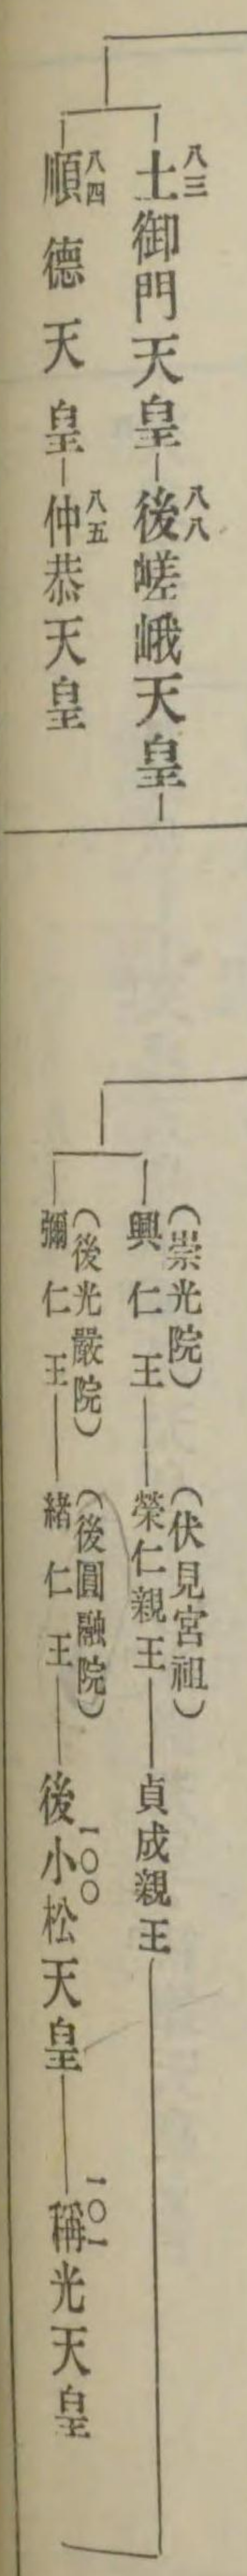 八三
土御門天皇
八八
後嵯峨天皇
八四
順德天皇
八五
仲恭天皇
(崇光院)
興仁王
(伏見宮祖)
榮仁親王
貞成親王
(後光嚴院)
彌仁王
(後圓融院)
緒仁王
一〇〇
後小松天皇
一〇一
稱光天皇